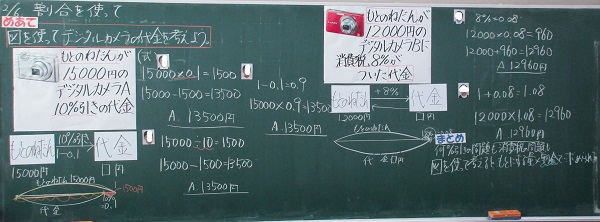 2/6 割合を使って
めあて
図を使ってデジタルカメラの代金を考えよう。
もとのねだんが
15000円の
デジタルカメラA
10%引きの代金
もとのねだん 10%引き 代金
1-0.1
15000円 □円
もとのねだん15000円
代金
(式)
15000×0.1=1500
15000-1500=13500
A.13500円
15000÷10=1500
15000-1500=13500
A.13500円
1-0.1=0.9
15000×0.9=13500
A.13500円
もとのねだんが
12000円の
デジタルカメラBに
消費税8%が
ついた代金
もとのねだん +8% 代金
12000円 □円
もとのねだん
代金□円
8%=0.08
12000×0.08=960
12000+960=12960
A.12960円
1+0.08=1.08
12000×1.08=12960
A.12960円
まとめ